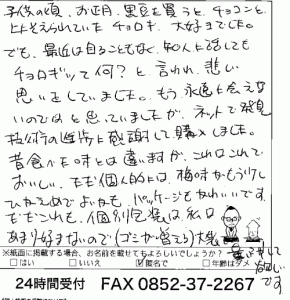 子供の頃、お正月、黒豆を買うと、チョコンと
上にそえられていたチョロギ、大好きでした。
でも、最近は見ることもなく、知人に話しても
チョロギって何？と、言われ、悲しい
思いをしていました。もう永遠に会えな
いのでは と思っていましたが、ネットで発見
技術の進歩に感謝して購入しました。
昔食べた味とは違いますが、これはこれで
おいしい。ただ個人的には、梅味がもう少し
ひかえめでよいかも。パッケージもかわいいです。
個別包装は私は
あまり好きないので（ゴミが増えろ）
※紙面に掲載する場合、お名前を載せてもよろしいでしょうか？
□はい □いいえ ☑匿名で □年齢はダメ
24時間受付 FAX 0852-37-2267